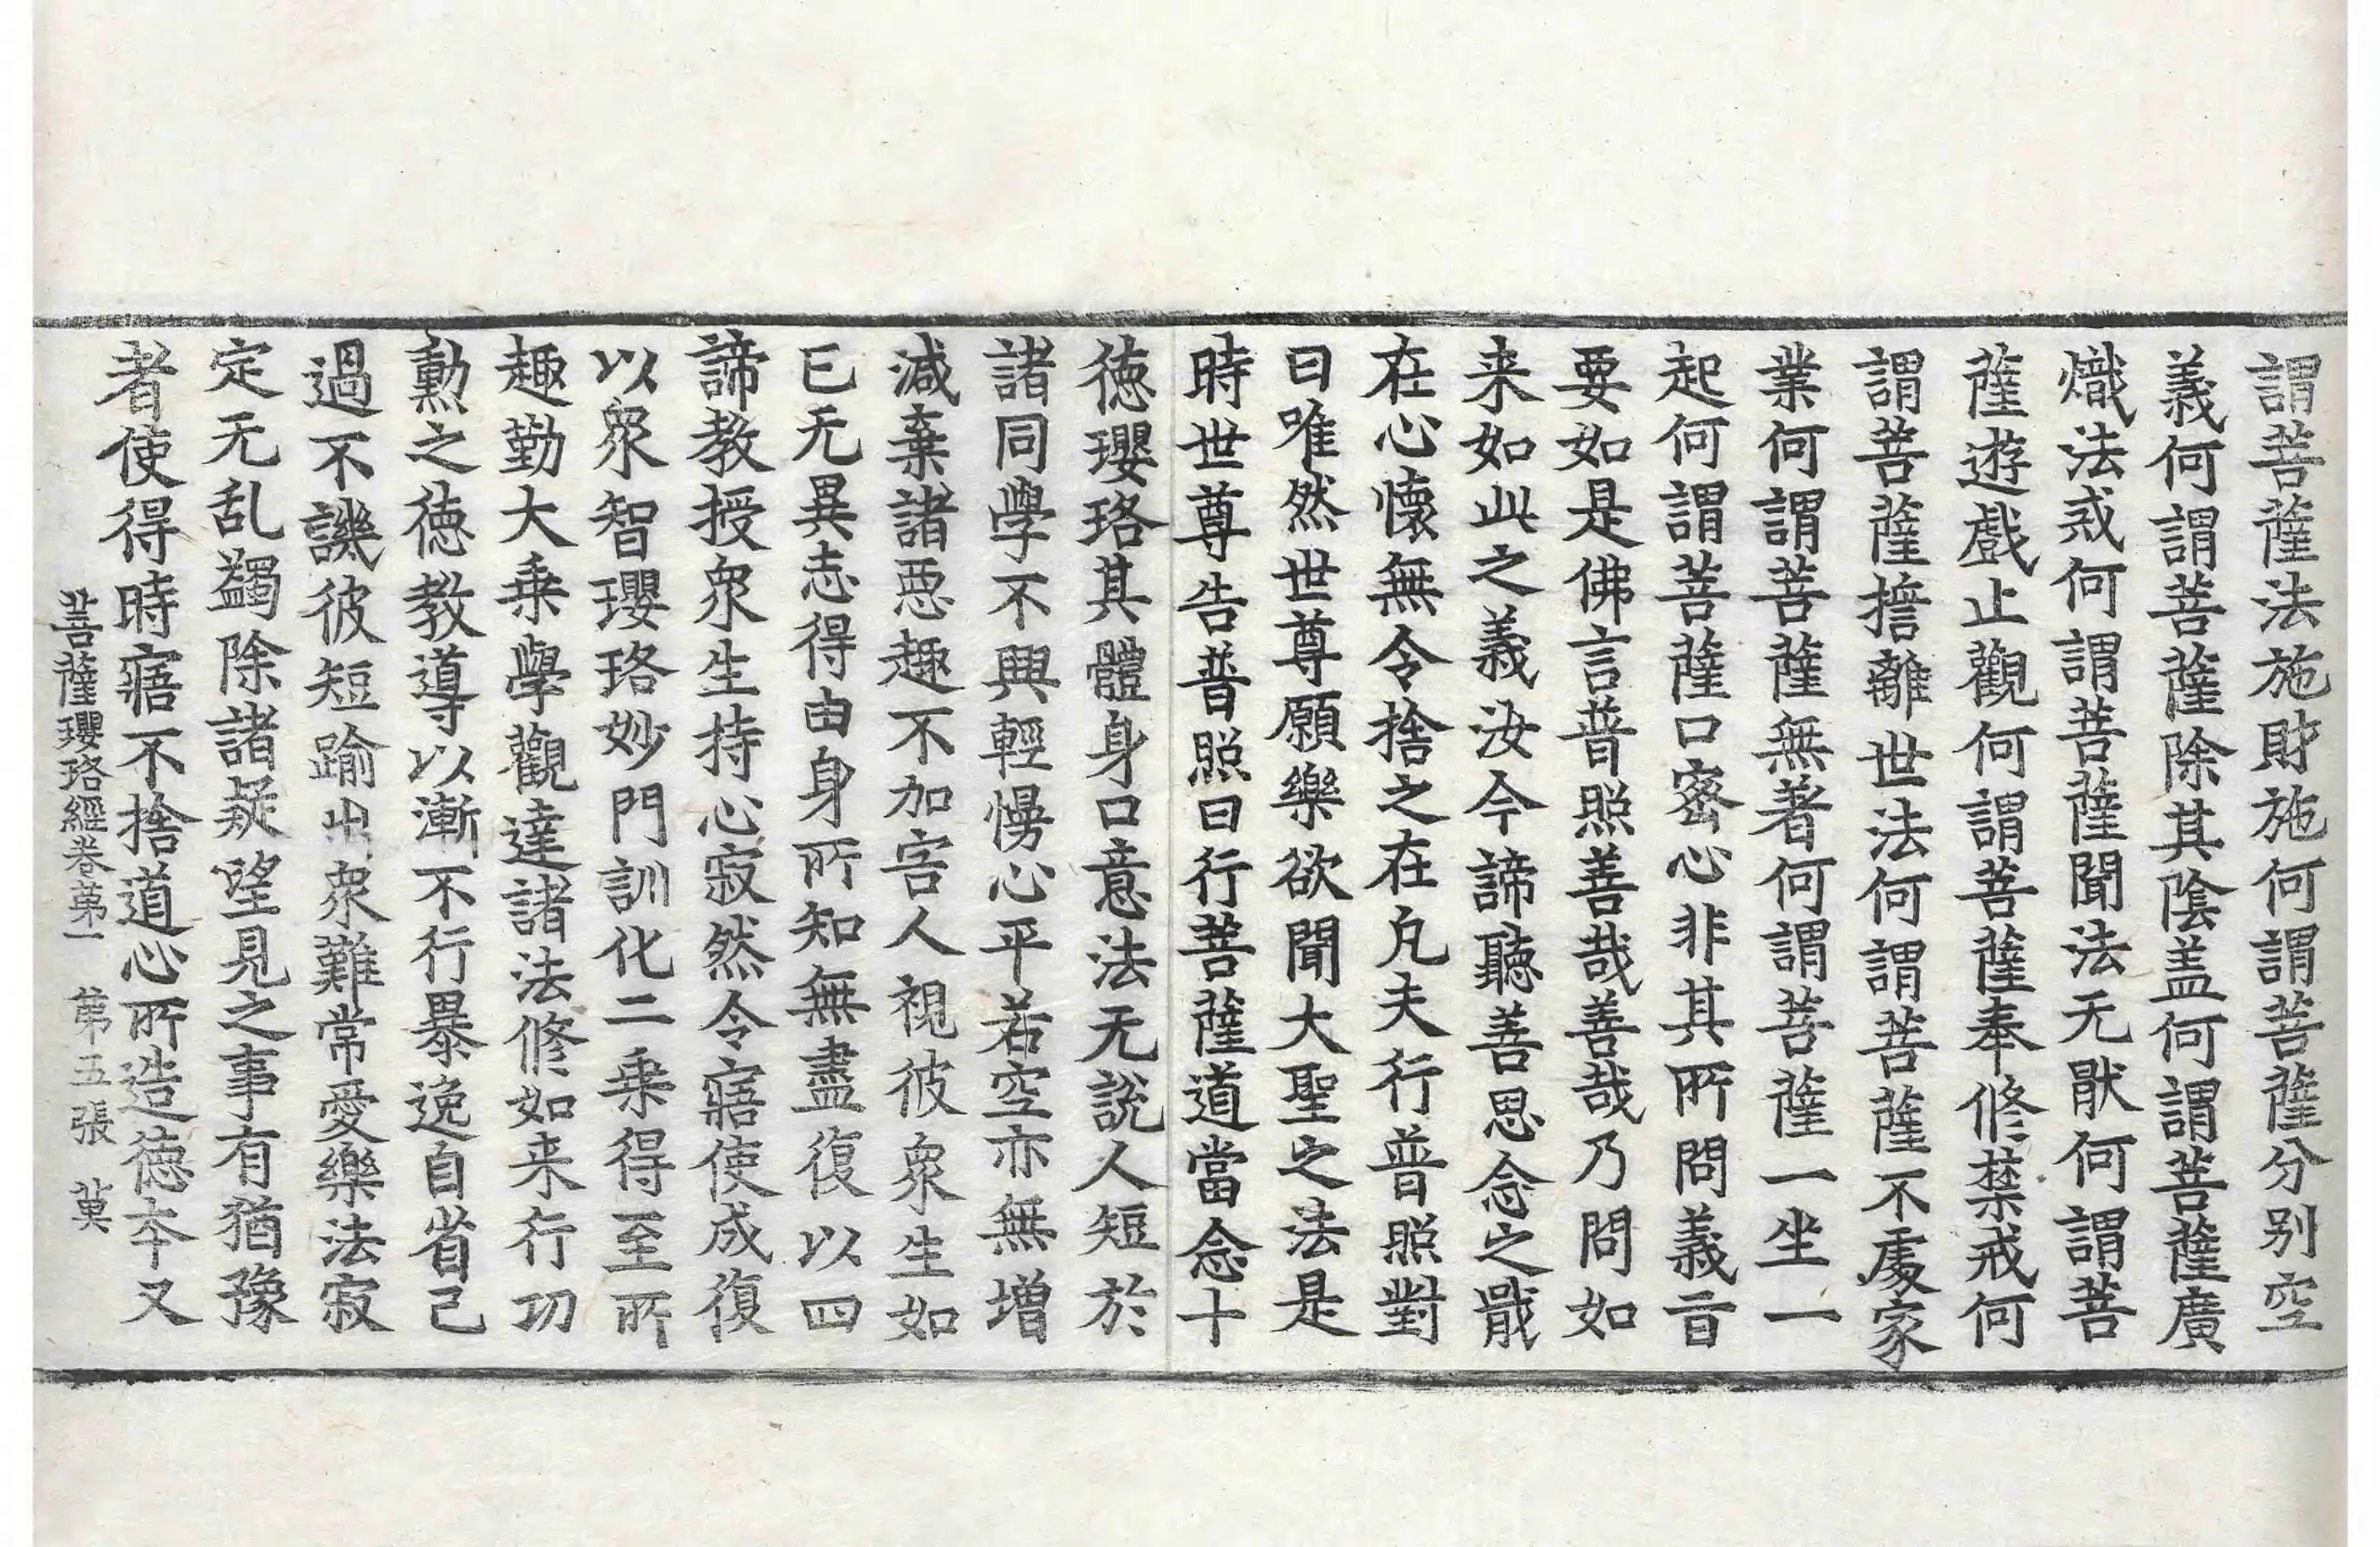 謂菩薩法施財施何謂菩薩分别空
義何謂菩薩除其陰盖何謂菩薩廣
熾法戒何謂菩薩聞法无猒何謂菩
薩遊戲止觀何謂菩薩奉修禁戒何
謂菩薩擔離世法何謂菩薩不處家
業何謂菩薩無著何謂菩薩一坐一
起何謂菩薩口密心非其所問義亘
要如是佛言普照善哉善哉乃問如
来如此之義汝今諦聽善思念之戢
在心懷無令捨之在凡夫行普照對
曰唯然世尊願樂欲聞大聖之法是
時世尊告普照曰行菩薩道當念十
徳瓔珞其體身口意法无說人短於
諸同學不興輕慢心平若空亦無增
減棄諸惡趣不加害人視彼衆生如
已无異志得由身所知無盡復以四
諦教授衆生持心寂然令寤使成復
以衆智瓔珞妙門訓化二乗得至所
趣勤大乗學觀達諸法修如来行功
勲之徳教導以漸不行暴逸自省己
過不譏彼短踰出衆難常愛樂法寂
定无乱蠲除諸疑望見之事有猶豫
者使得時寤不捨道心所造徳夲又
菩薩瓔珞經卷苐一 苐五張 莫